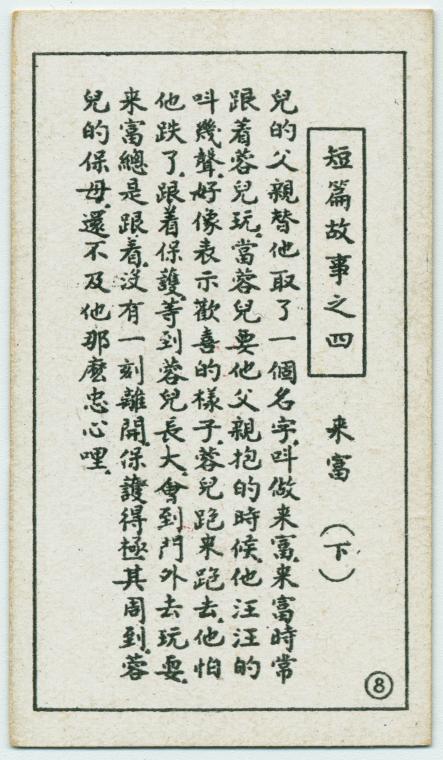 短篇故事之四
来富（下）
兒的父親替他取了一個名字.叫做来富.来富時常
跟着蓉兒玩.當蓉兒要他父親抱的時候.他汪汪的
叫幾聲.好像表示歡喜的樣子.蓉兒跑来跑去.他怕
他跌了.跟着保護.等到蓉兒長大.會到門外去玩耍.
来富總是跟着.沒有一刻離開.保護得極其周到.蓉
兒的保母.還不及他那麽忠心哩.
8